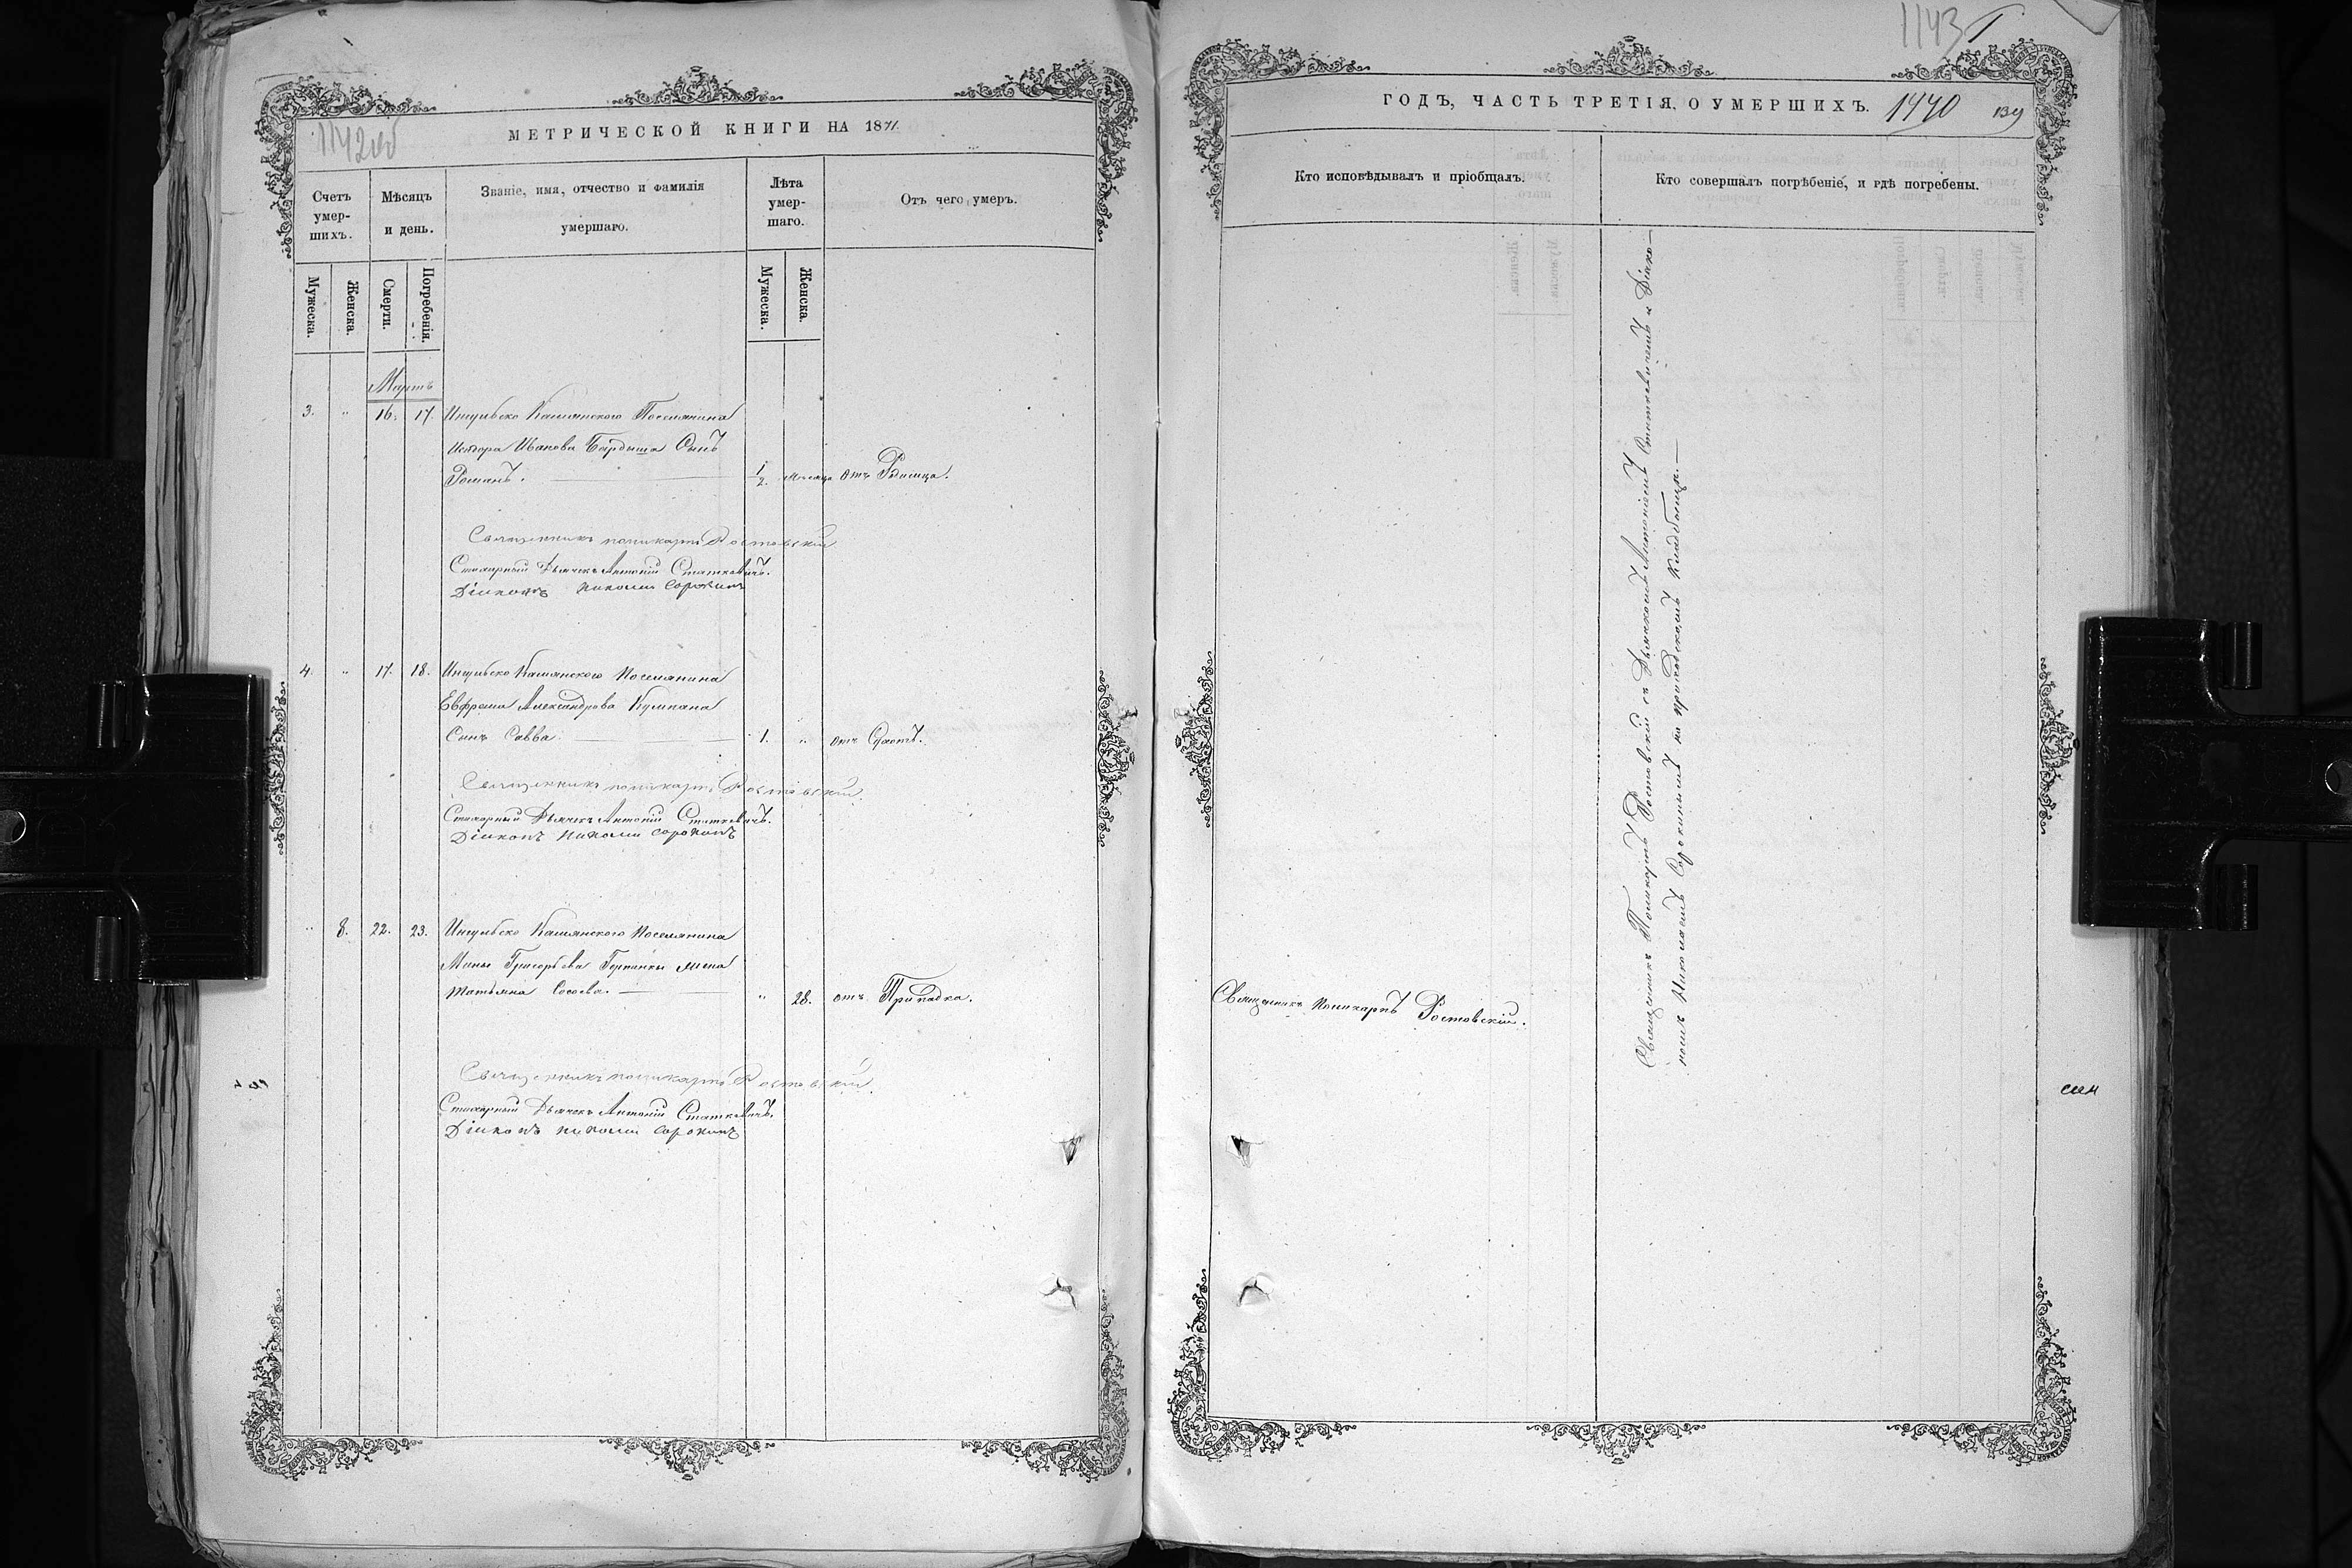 1142об
МЕТРИЧЕСКОЙ КНИГИ НА 1871.
Счетъ умер-шихъ.
Мѣсяцъ и день.
Званіе, имя, отчество и фамилія умершаго.
Лѣта умер-шаго.
Отъ чего умеръ.
Мужеска.
Женска.
Смерти.
Погребенія.
Мужеска.
Женска.
Мартъ
3. " 16. 17. Ингульско Каменского Поселянина
Исидора Иванова Бардыша Сынъ
Романъ. 1/2. месяца отъ Родимца.
Священникъ Поликарпъ Ростовскій
Стихарный Дьячекъ Антоній Статкевичъ.
Діаконъ Николай Сорокинъ
4. " 17. 18. Ингульско Каменского Поселянина
Евфрема Александрова Кулпана
Сынъ Савва 1. " отъ
Священникъ Поликарпъ Ростовскій.
Стихарный Дьячекъ Антоній Статкевичъ.
Діаконъ Николай Сорокинъ
" 8. 22. 23. Ингульско Каменского Поселянина
Мины Григорьева жена
Татьяна Сосоева. " 28. отъ Припадка.
Священникъ Поликарпъ Ростовскій.
Стихарный Дьячекъ Антоній Статкевичъ.
Діаконъ Николай Сорокинъ
1143
ГОДЪ, ЧАСТЬ ТРЕТІЯ, О УМЕРШИХЪ. 1440 139
Кто исповѣдывалъ и пріобщалъ.
Кто совершалъ погрѣбеніе, и гдѣ погребены.
Священникъ Поликарпъ Ростовскій.
Священникъ Поликарпъ Ростовскій съ Дьячкомъ Антоніемъ Статкевичемъ и Діако-
номъ Николаемъ Сорокинымъ на приходскомъ кладбищѣ.